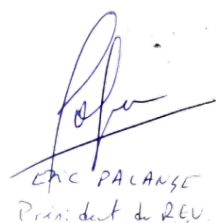 ERIC PALANGE
Président du REV